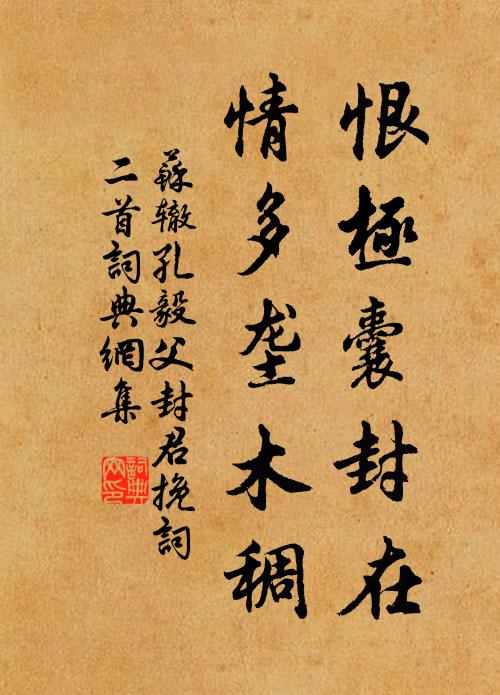 恨極囊封在
情多垄木稠
蘇辙孔毅父封君挽詞
二首詞典網集
詞典网印